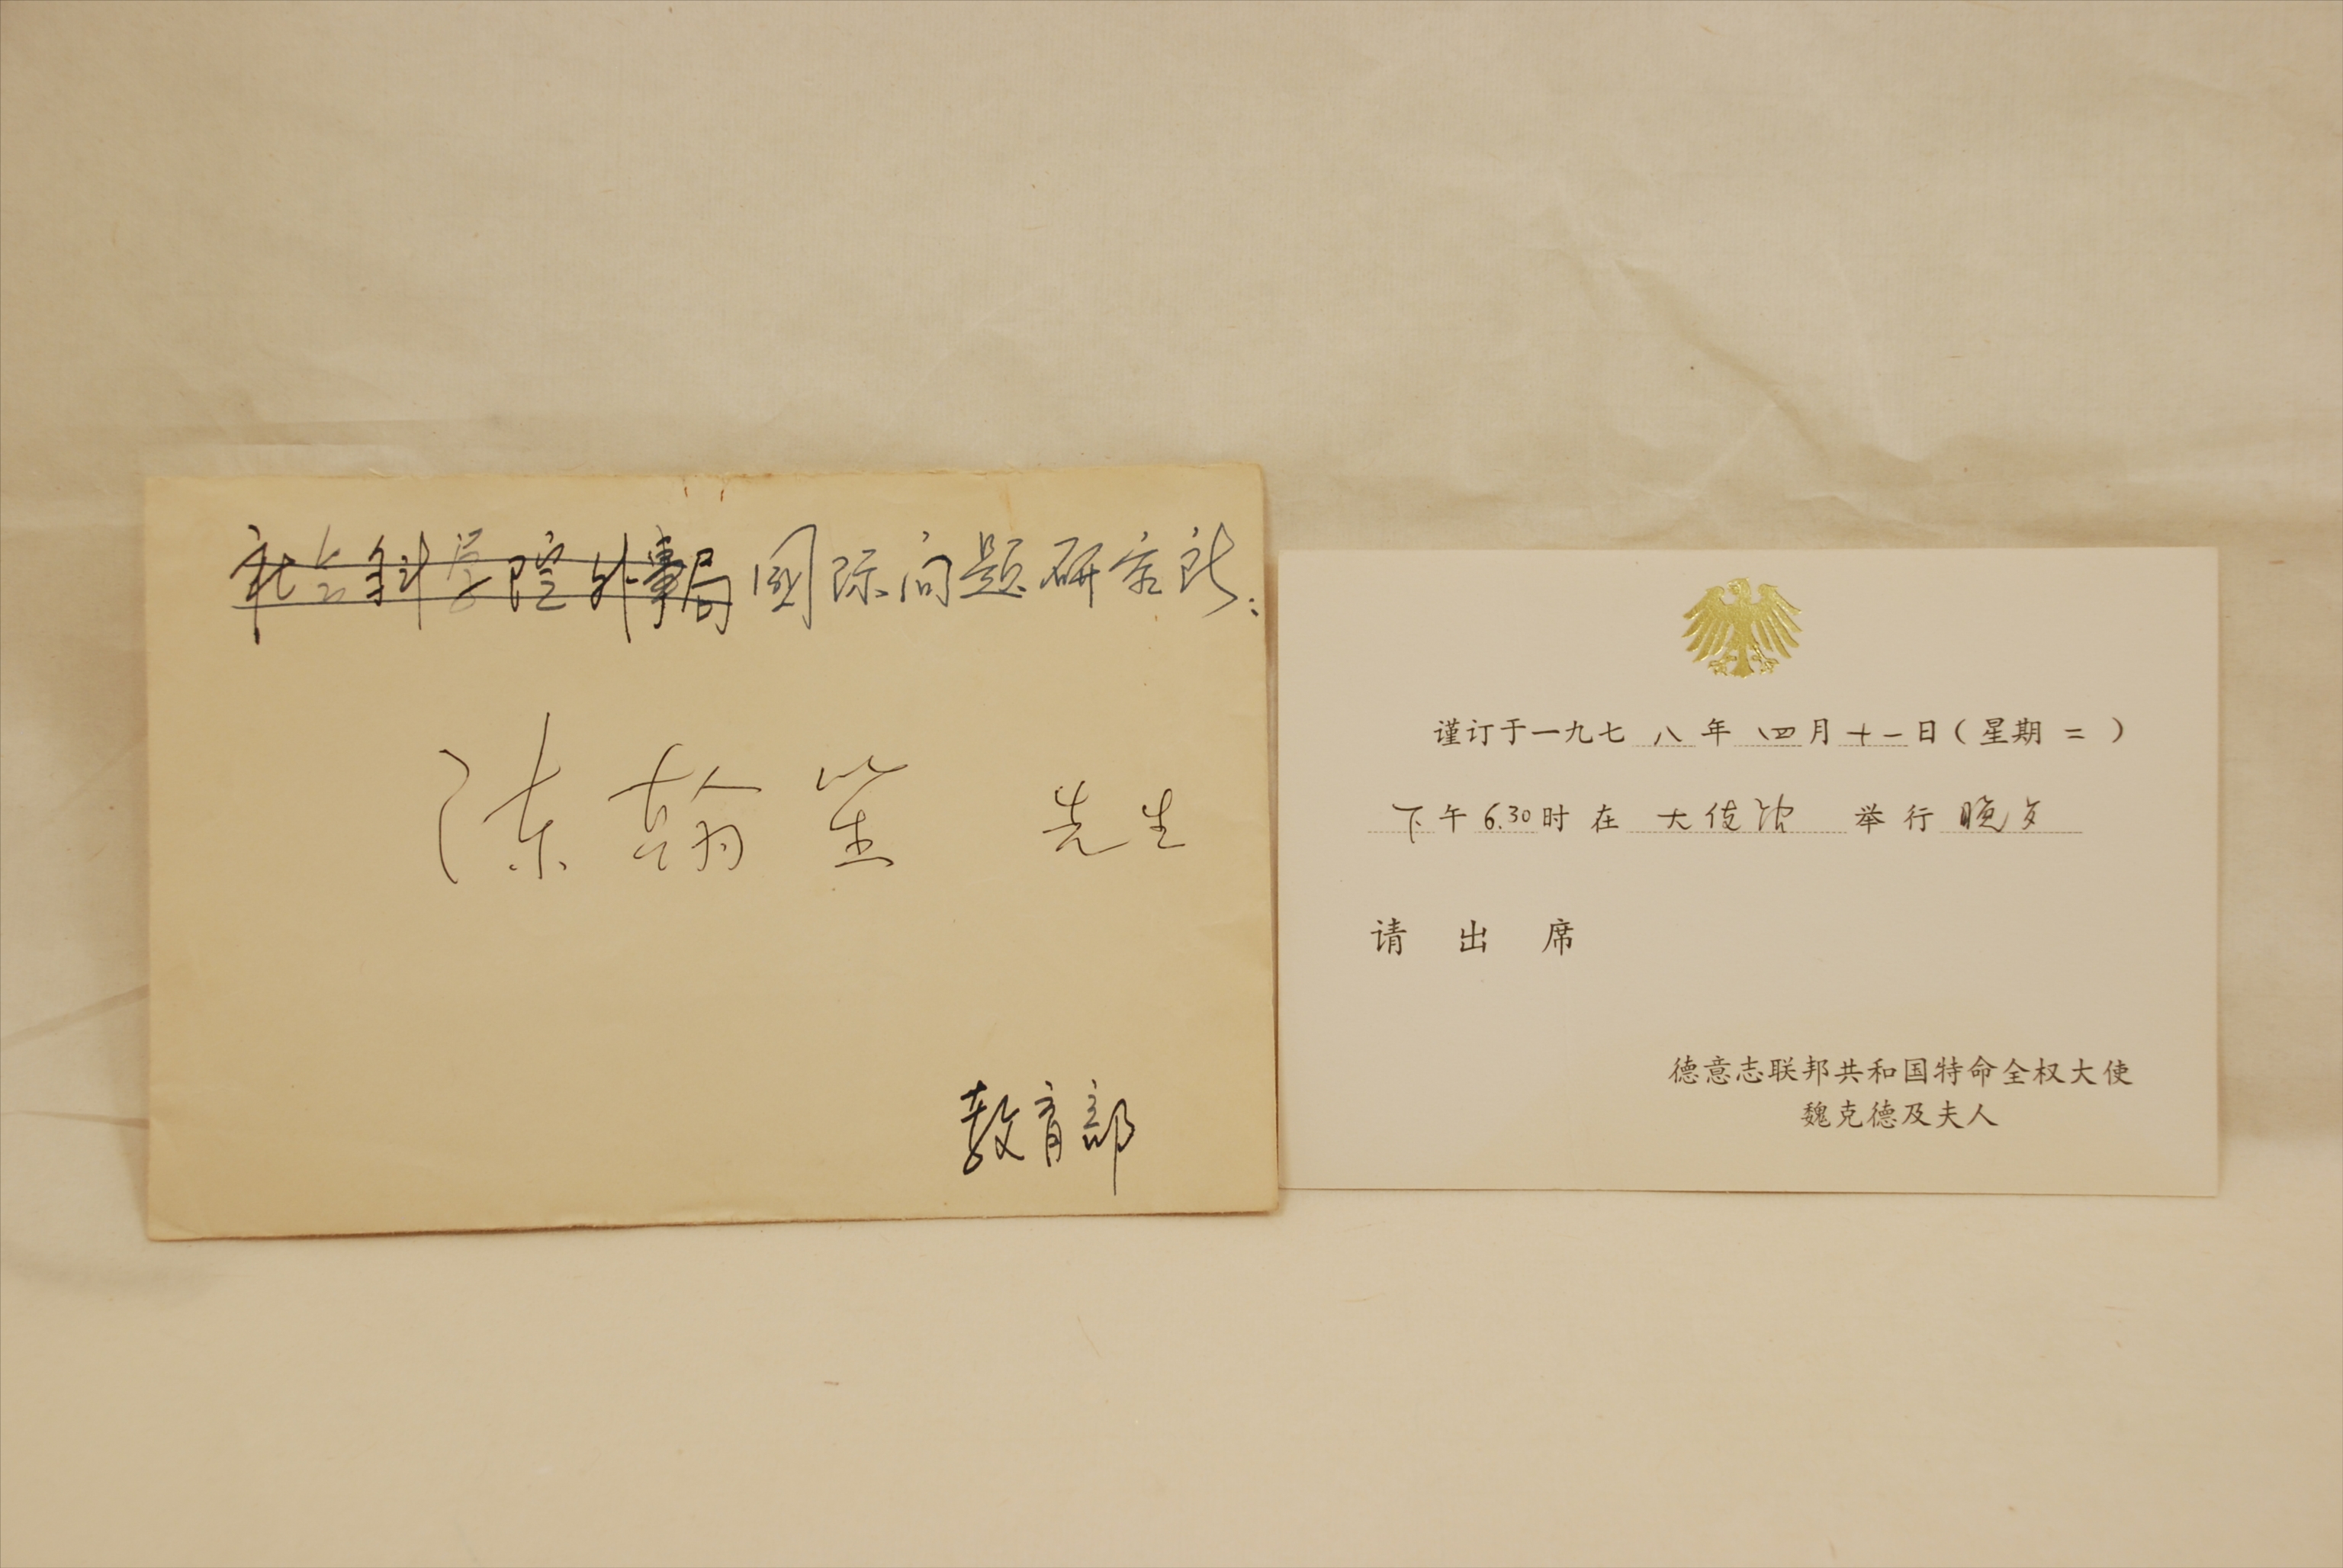 社会科学院外事局国际问题研究所:
陈翰笙 先生
教育部
谨订于一九七八年四月十一日(星期二)
下午6.30时在大使馆举行晚
请出席
德意志联邦共和国特命全权大使
魏克德及夫人